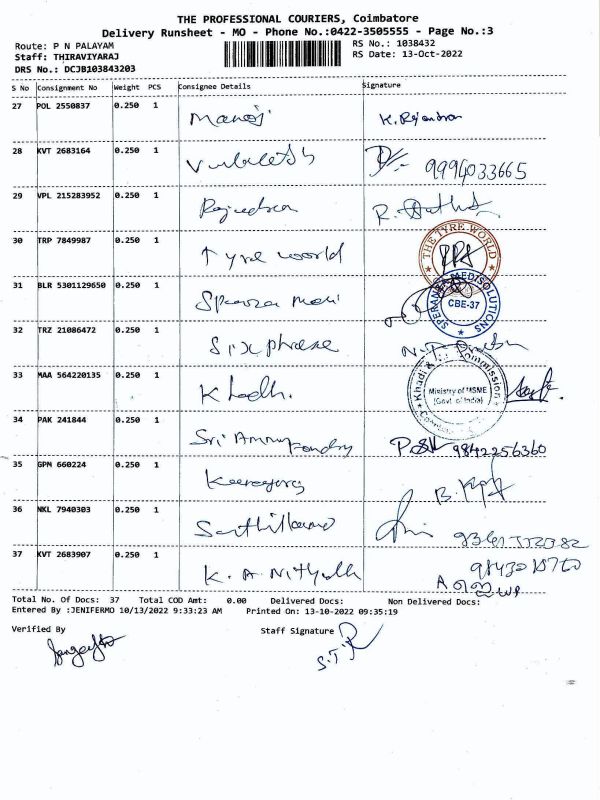 THE PROFESSIONAL COURIERS, Coimbatore
Delivery Runsheet - MO - Phone No.:0422-3505555 - Page No.:3
Route: P N PALAYAM
RS No.: 1038432
Staff: THIRAVIYARAJ
RS Date: 13-Oct-2022
DRS No.: DCJB103843203
S No Consignment No Weight PCS Consignee Details Signature
27 POL 2550837 0.250 1 Manoj K. Rajendran
28 KVT 2683164 0.250 1 9994033665
29 VPL 215283952 0.250 1 R.
30 TRP 7849987 0.250 1 Tyre world
THE TYRE WORLD
31 BLR 5301129650 0.250 1
SPERANZA MEDISOLUTIONS
CBE-37
32 TRZ 21086472 0.250 1 Six phrase
33 MAA 564220135 0.250 1 Khadhi.
Khadi & Commission
Ministry of MSME
(Govt. of India)
34 PAK 241844 0.250 1 Sri Ammu Foundry 9842256360
35 GPM 660224 0.250 1 B.
36 NKL 7940303 0.250 1
37 KVT 2683907 0.250 1 K. A. Nityadh
Total No. Of Docs: 37 Total COD Amt: 0.00 Delivered Docs: Non Delivered Docs:
Entered By :JENIFERMO 10/13/2022 9:33:23 AM Printed On: 13-10-2022 09:35:19
Verified By Staff Signature
S.T.R